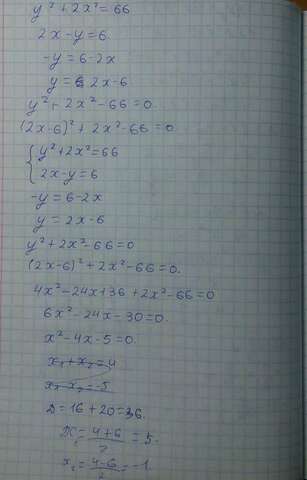 y² + 2x² = 66
2x - y = 6
-y = 6 - 2x
y = 2x - 6
y² + 2x² - 66 = 0.
(2x-6)² + 2x² - 66 = 0.
{ y² + 2x² = 66
2x - y = 6
-y = 6 - 2x
y = 2x - 6
y² + 2x² - 66 = 0
(2x-6)² + 2x² - 66 = 0.
4x² - 24x + 36 + 2x² - 66 = 0
6x² - 24x - 30 = 0.
x² - 4x - 5 = 0.
x₁ + x₂ = 4
x₁ x₂ = -5
D = 16 + 20 = 36.
x₁ = (4+6)/2 = 5.
x₂ = (4-6)/2 = -1